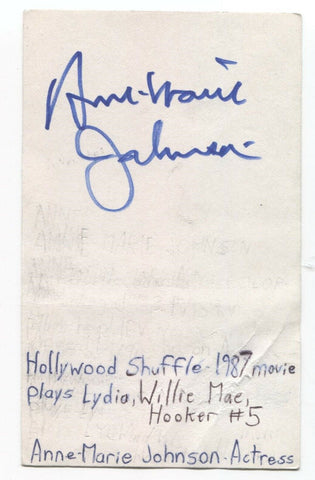 Anne-Marie
Johnson
ANNE
ANNE MARIE JOHNSON
Hollywood Shuffle-1987 movie
plays Lydia, Willie Mae,
Hooker #5
Anne-Marie Johnson-Actress